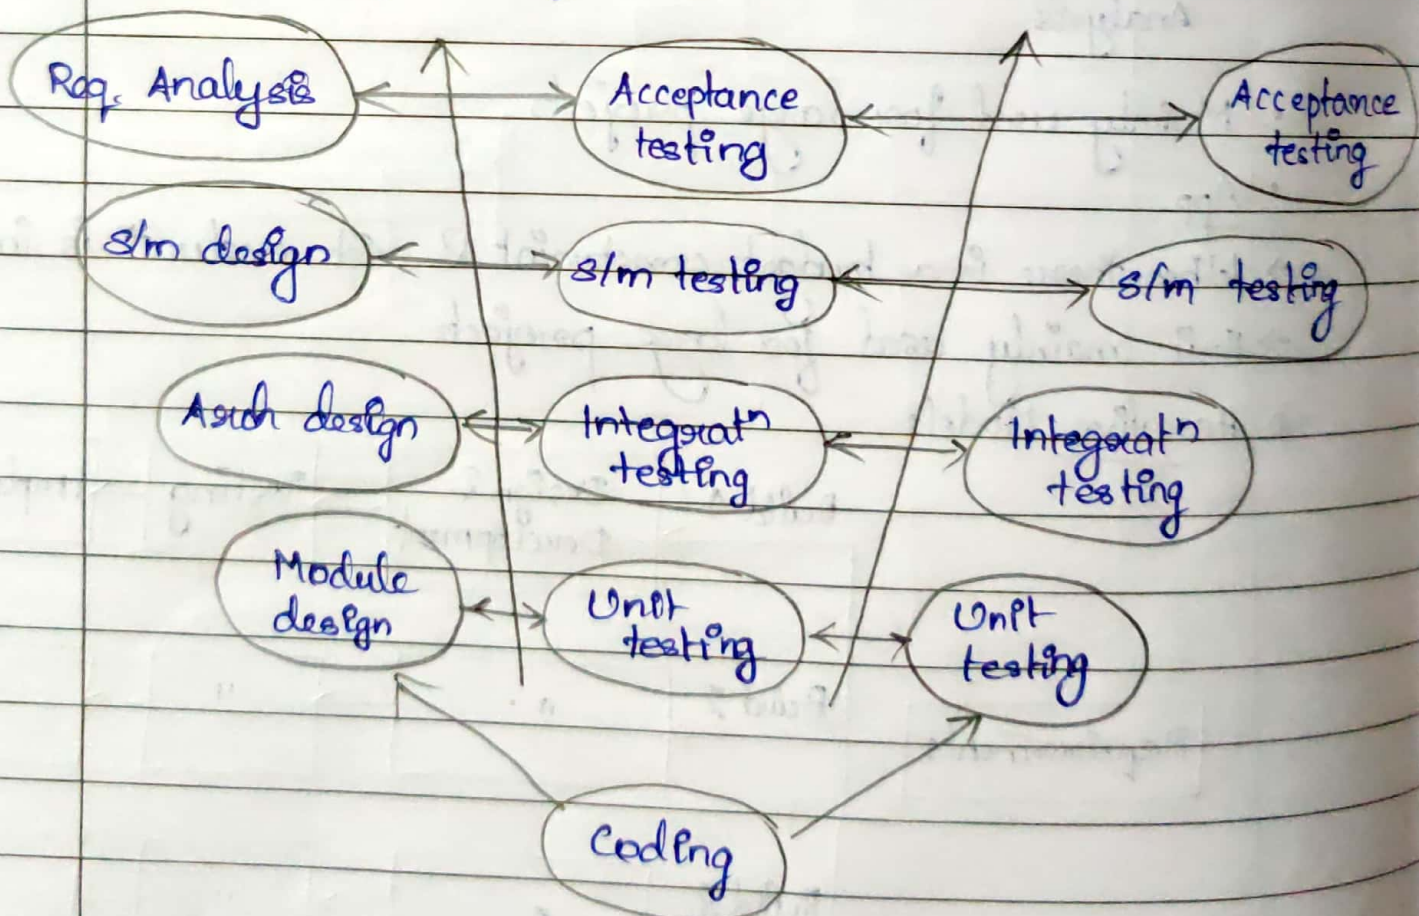 Req. Analysis
Acceptance
testing
Acceptance
testing
s/m design
s/m testing
s/m testing
Arch design
Integratⁿ
testing
Integratⁿ
testing
Module
design
Unit
testing
Unit
testing
Coding